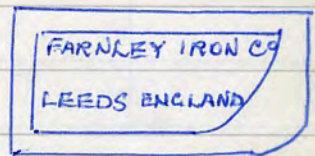 FARNLEY IRON Co
LEEDS ENGLAND